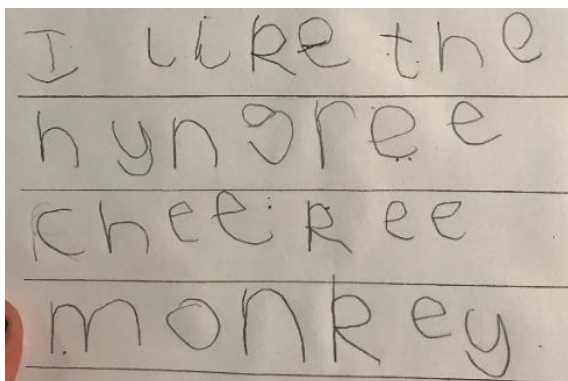 I like the
hyngree
cheekee
monkey